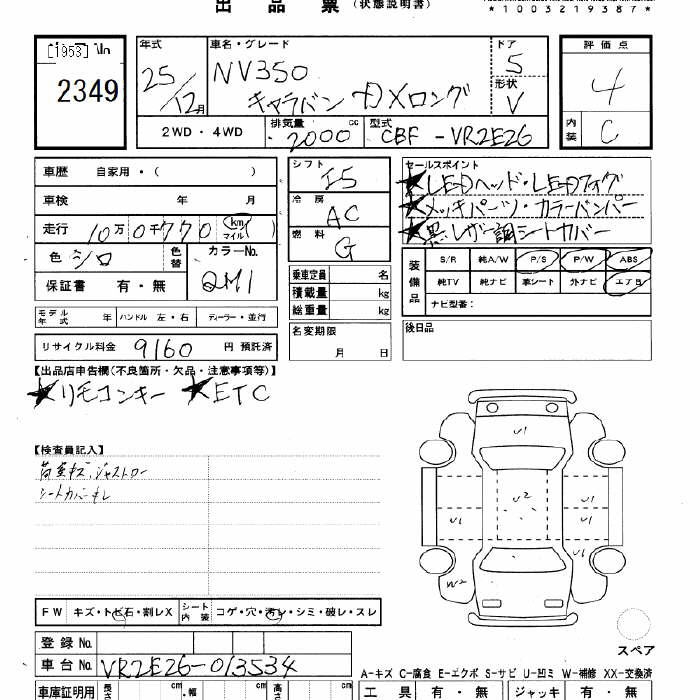 出品票 (状態説明書)
*1003219387*
[1953] Vln
2349
年式
25/12月
車名・グレード
NV350
キャラバン DXロング
ドア
5
形状
V
評価点
4
内装
C
2WD・4WD
排気量 cc
2000
型式
CBF-VR2E26
車歴 自家用・( )
車検 年 月
走行 10万0千770 km マイル
色 シロ 色替
カラーNo.
QM1
保証書 有・無
シフト
I5
冷房
AC
燃料
G
セールスポイント
★LEDヘッド・LEDフォグ
★メッキパーツ・カラーバンパー
★黒レザー調シートカバー
装備品
S/R 純A/W P/S P/W ABS
純TV 純ナビ 革シート 外ナビ エアB
ナビ型番:
乗車定員 名
積載量 kg
総重量 kg
モデル年式 年 ハンドル 左・右 ディーラー・並行
リサイクル料金 9160 円 預託済
名変期限
月 日
後日品
【出品店申告欄(不良箇所・欠品・注意事項等)】
★リモコンキー ★ETC
【検査員記入】
荷室キズ、ジャストロー
シートカバーキレ
U1
U2
U1
U1
U1
W2
FW キズ・トビ石・割レX シート内装 コゲ・穴・汚レ・シミ・破レ・スレ
スペア
登録No.
車台No. VR2E26-013534
A-キズ C-腐食 E-エクボ S-サビ U-凹ミ W-補修 XX-交換済
車庫証明用 長さ cm 幅 cm 高さ cm
工具 有・無 ジャッキ 有・無